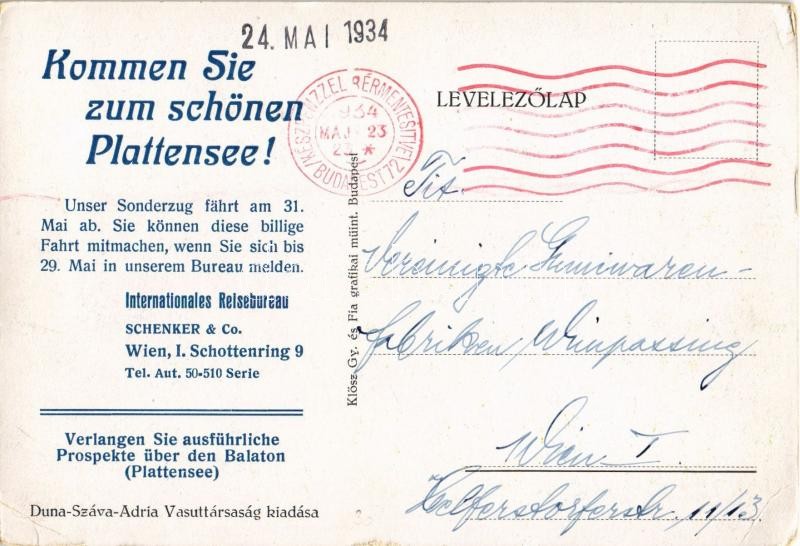 24. MAI 1934
Kommen Sie
zum schönen
Plattensee!
KÉSZPÉNZZEL BÉRMENTESITVE
1934
MAJ. 23
23 *
BUDAPEST 72
LEVELEZŐLAP
Unser Sonderzug fährt am 31.
Mai ab. Sie können diese billige
Fahrt mitmachen, wenn Sie sich bis
29. Mai in unserem Bureau melden.
Internationales Reisebureau
SCHENKER & Co.
Wien, I. Schottenring 9
Tel. Aut. 50-510 Serie
Verlangen Sie ausführliche
Prospekte über den Balaton
(Plattensee)
Duna-Száva-Adria Vasuttársaság kiadása
Klösz Gy. és Fia grafikai müint. Budapest
Tit.
Vereinigte Gumiwaren-
fabriken Wimpassing
Wien I.
Helferstorferstr. 11/13